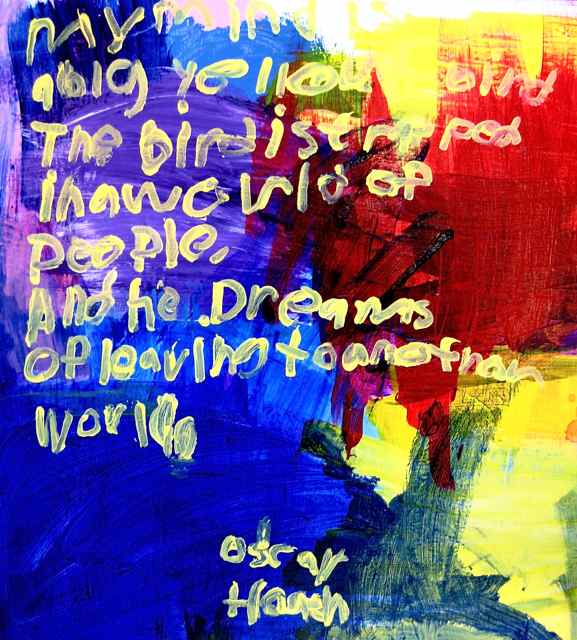 my mind is
a big yellow bird
The bird is trapped
in a world of
people.
And he Dreams
Of leaving to another
world
Oscar